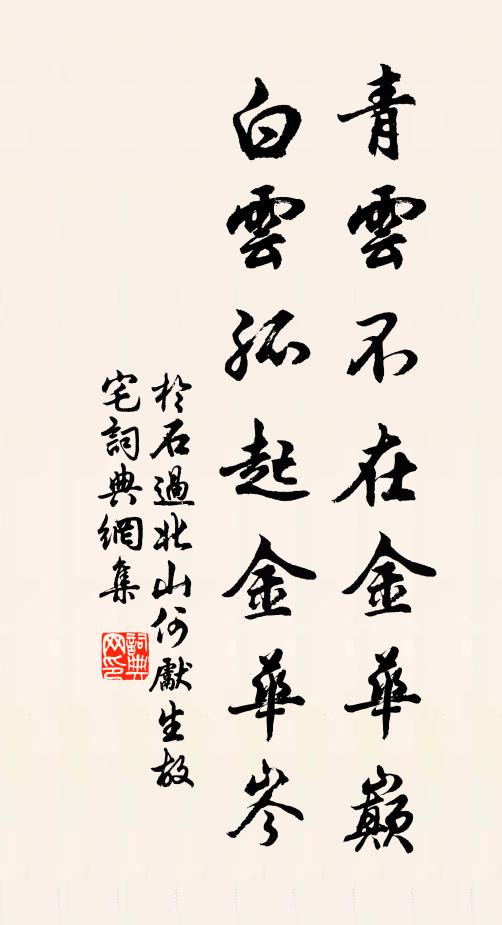 青雲不在金華巔
白雲孤起金華岑
於石過北山何獻生故
宅詞典網集
詞典
网印